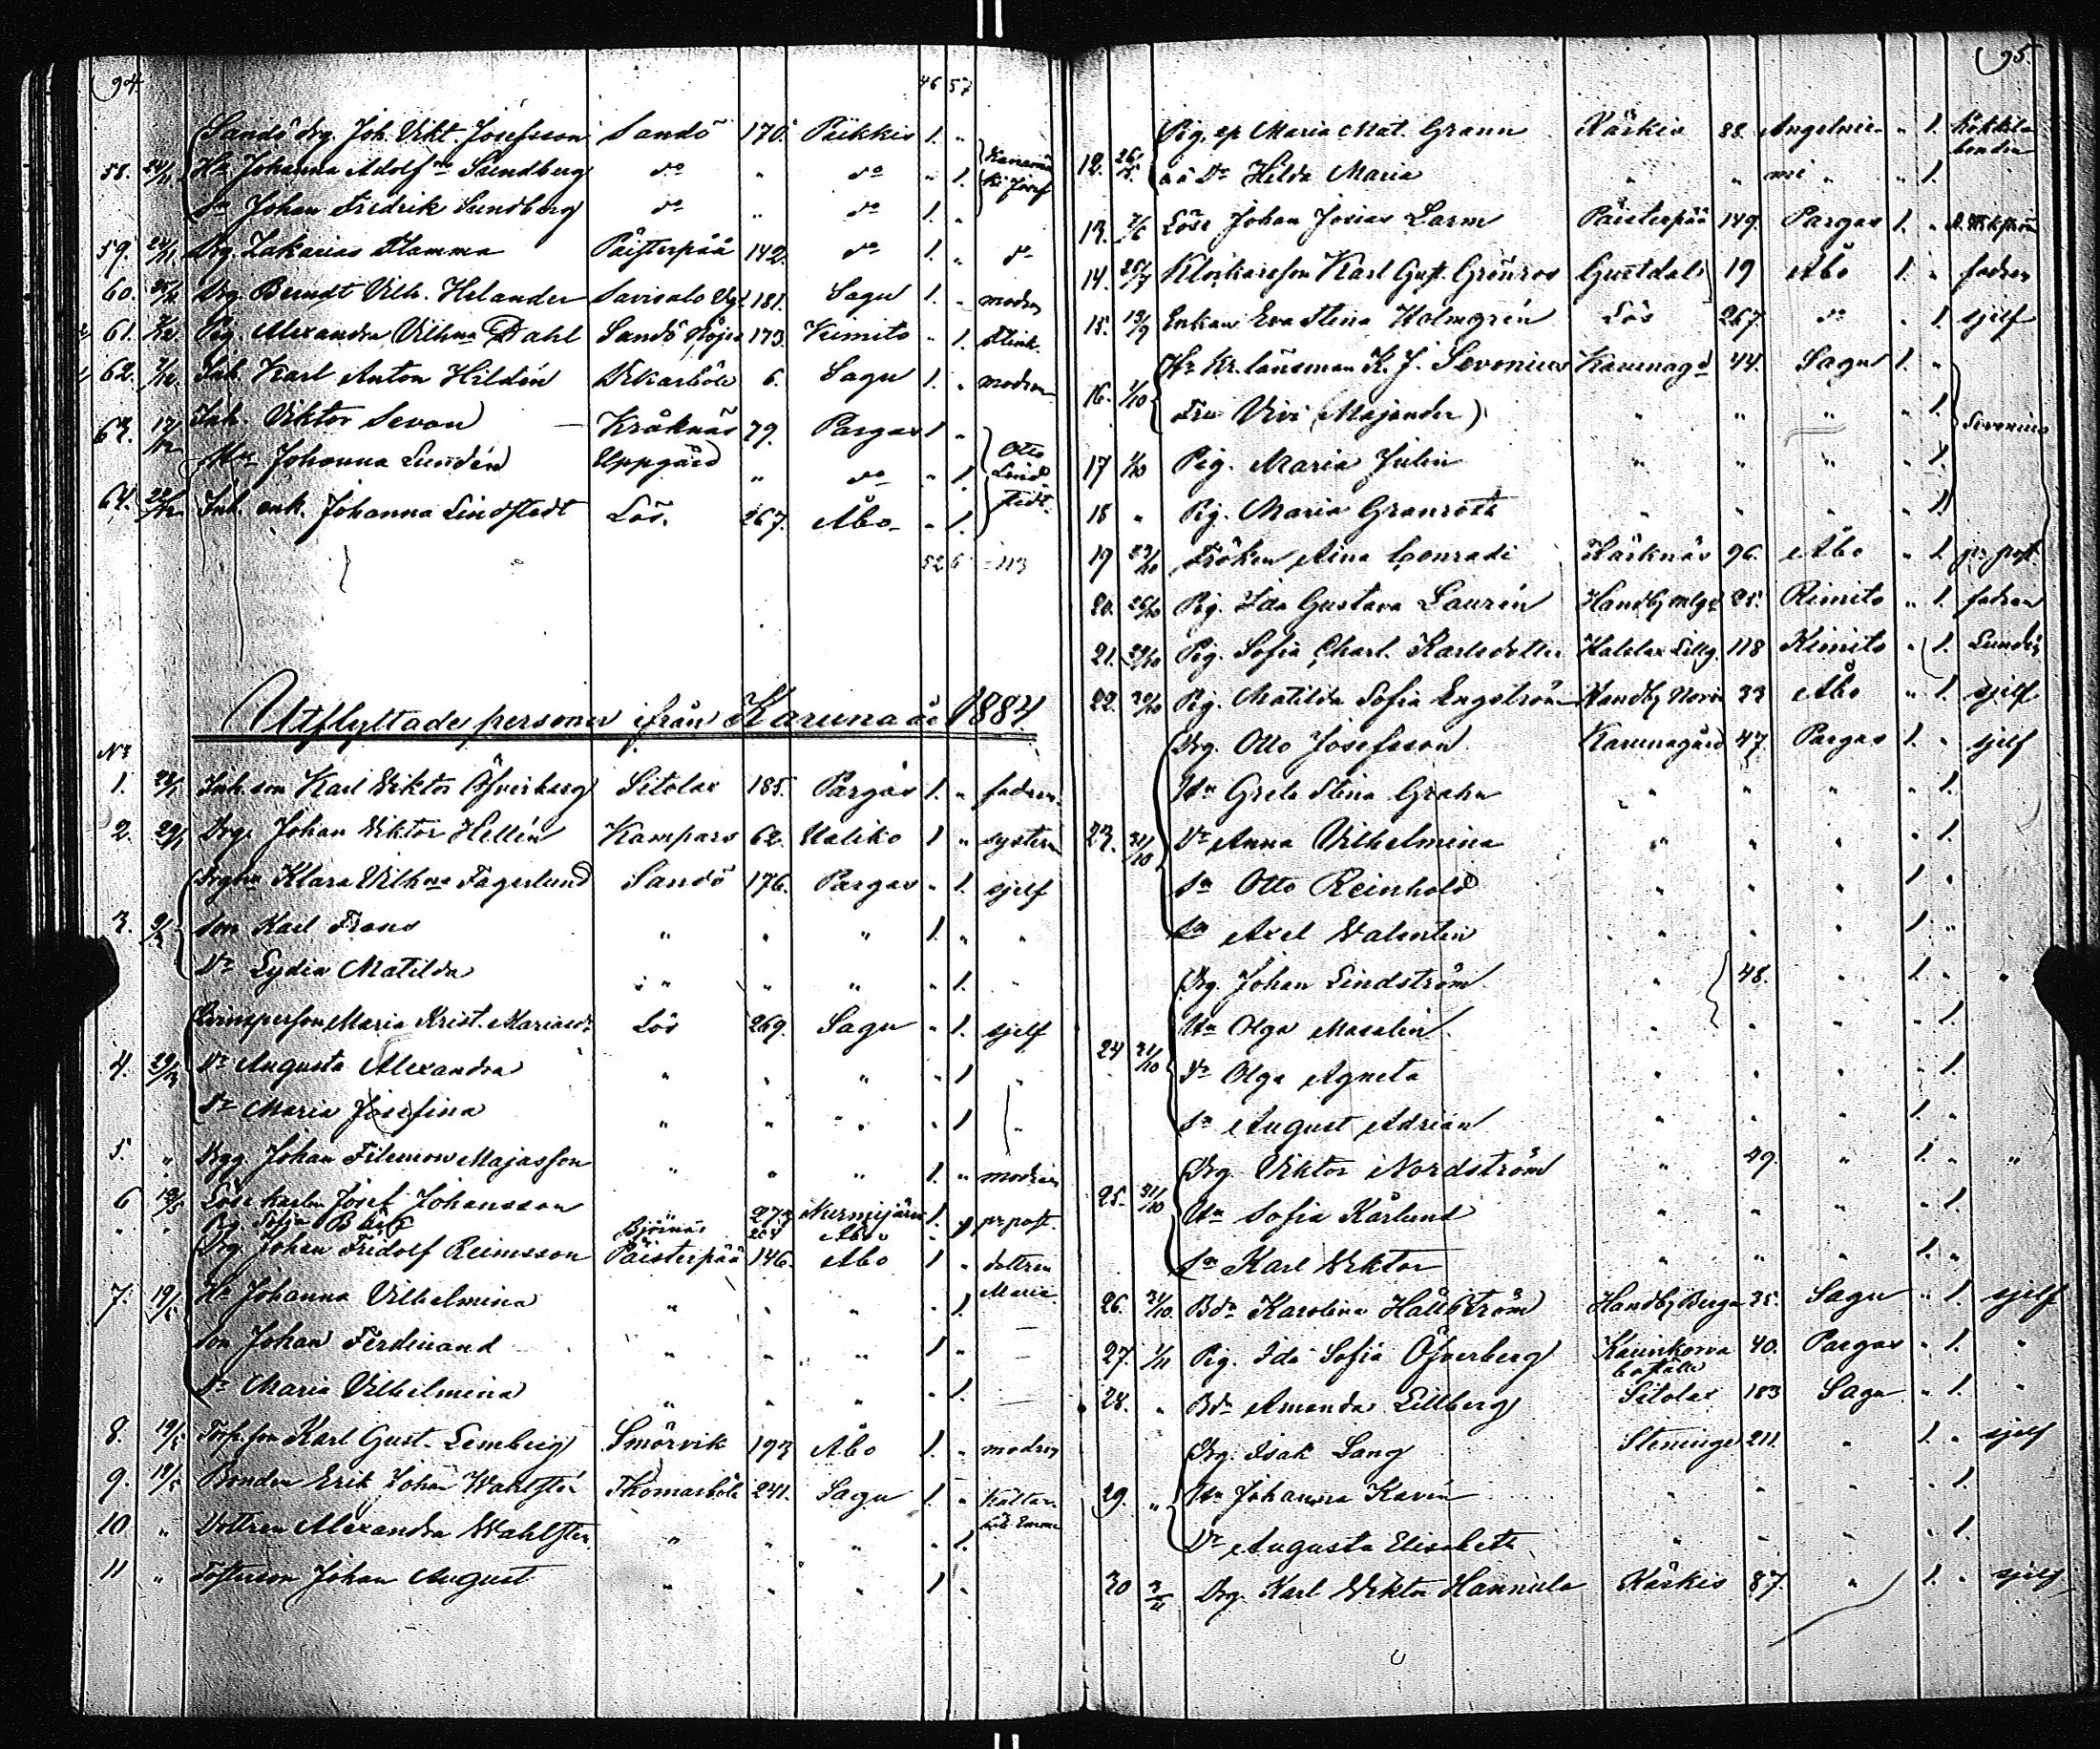 94
46 57
Sandö drg. Joh. Vikt. Josefsson Sandö 170. Piikkis 1. "
58. 24/11 Hu Johanna Adolfna Sundberg do " do " 1.
Sn Johan Fredrik Sundberg do " do 1. "
59. 24/11 Drg. Zakarias Flamma Päisterpää 142. do 1. " do
60. Drg. Berndt Vilh. Helander Savisalo 181. Sagu 1. " modren
61. Pig. Alexandra Vilhna Dahl Sandö 173. Kimito " 1.
62. Inh. Karl Anton Hildén 6. Sagu 1. " modren
63. 17/12 Inh. Viktor Sevon Kråknäs 79. Pargas 1 "
Johanna Lundén Uppgård " do " 1. Otto Lind
64. 22/12 Inh. enk. Johanna Lindstedt Lös. 267. Åbo " 1. stedt.
52 6 = 113
Utflyttade personer ifrån Karuna år 1884
No
1. Inh. son Karl Viktor Öfverberg Sitolax 185. Pargas 1. " fadren
2. 29/1 Drg. Johan Viktor Hellén Kampars 62. Uskiko 1 " system
Klara Vilhna Fagerlund Sandö 176. Pargas " 1. sjelf
3. son Karl Frans " " " 1. " "
Dr Lydia Matilda " " " " 1. "
Maria Krist. Lös 269. Sagu " 1. sjelf
4. 29/3 Dr Augusta Alexandra " " " " 1 "
Dr Maria Josefina " " " " 1 "
5. " Johan Filemon Majasson " " " 1. " modren
6 Löse karlen Josef Johansson 273 Nurmijärvi 1. " pr post.
" " Pig. Sofia Björnäs Åbo
Drg. Johan Fridolf Reinsson Päisterpää 146. Åbo 1 " dottren
7. 19/5 Hu Johanna Vilhelmina " " " " 1. Maria
son Johan Ferdinand " " " 1 " —
Dr Maria Vilhelmina " " " " 1. —
8. 19/5 Torp. son Karl Gust. Lemberg Smörvik 193 Åbo 1. " modren
9. 19/5 Bonden Erik Johan Wahlstén Thomasböle 241. Sagu 1. "
10 " Dottren Alexandra Wahlstén " " " " 1.
11 " Fosterson Johan August " " " 1 "
95.
Pig. Maria Mat. Grann Kärkis 88. Angelnie " 1. bonden
12. Dr Hilda Maria " " " " 1.
13. Löse Johan Josias Larm Päisterpää 149. Pargas 1. "
14. Klockareson Karl Gust. Grönros Gustdals 19 Åbo 1. " fadren
15. 19/9 Enkan Eva Stina Holmgrén Lös 267. do " 1. sjelf
Hr kr. länsman K. J. Sevonius Karunagd 44. Sagu 1. "
16. 1/10 Fru Vivi (Majander) " " " " 1. Sevonius
17 1/10 Pig. Maria Julin " " " " 1.
18 " Pig. Maria Granroth " " " " 1.
19 Fröken Aina Conradi Kärknäs 96. Åbo " 1. pr post
20. 26/10 Pig. Ida Gustava Laurén Handby 25. Rimito " 1. fadren
21. Pig. Sofia Charl. Karlsdotter Halslax Lillg. 118 Kimito " 1. Lundén
22. Pig. Matilda Sofia Engström Handby Norr 33 Åbo " 1. sjelf
Drg. Otto Josefsson Karunagård 47. Pargas 1. " sjelf
Hu Greta Stina Grahn " " " " 1.
23. 31/10 Dr Anna Vilhelmina " " " " 1.
Sn Otto Reinhold " " " 1 "
Sn Axel Valentin " " " 1 "
Drg. Johan Lindström " 48. " 1. " "
Hu Olga Masalin " " " " 1.
24 31/10 Dr Olga Agneta " " " " 1.
Sn August Adrian " " " 1. "
Drg. Viktor Nordström " 49. " 1. " "
25. 31/10 Hu Sofia Kårlund " " " " 1.
Sn Karl Viktor " " " 1. "
26. 31/10. Bda Karolina Hällström Handby Berga 35. Sagu " 1. sjelf
27. 1/11 Pig. Ida Sofia Öfverberg 40. Pargas " 1. "
28. " Bda Amanda Lillberg Sitolax 183 Sagu " 1. "
Drg. Isak Lang Steninge 211. " 1. " sjelf
29. " Hu Johanna Kavén " " " " 1.
Dr Augusta Elisabeth " " " " 1.
30 3/11 Drg. Karl Viktor Hannula Kärkis 87. " 1. " sjelf